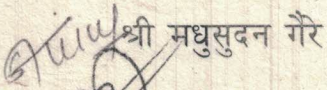 श्री मधुसुदन गैरे